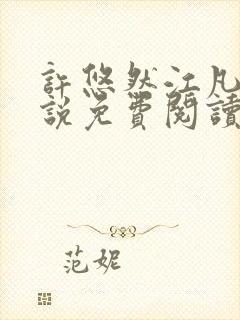 許悠然江凡
說免費閱讀
范妮